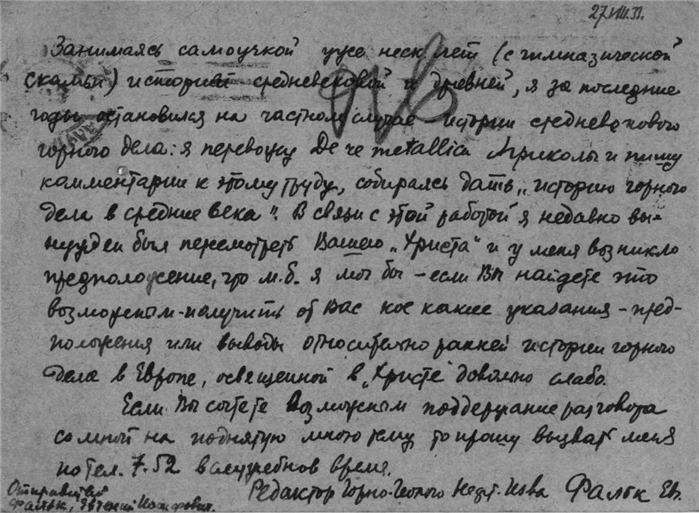 27.VIII.33.
Занимаясь самоучкой уже неск. лет (с гимназической
скамьи) историей средневековой и древней, я за последние
годы остановился на частном случае истории средневекового
горного дела: я перевожу De re metallica Агриколы и пишу
комментарии к этому труду, собираясь дать „историю горного
дела в средние века". В связи с этой работой я недавно вы-
нужден был пересмотреть Вашего „Христа" и у меня возникло
предположение, что м.б. я мог бы – если Вы найдете это
возможным – получить от Вас кое какие указания – пред-
положения или выводы относительно ранней истории горного
дела в Европе, освещенной в „Христе" довольно слабо.
Если Вы сочтете возможным поддержание разговора
со мной на поднятую мною тему, то прошу вызвать меня
по тел. 7-52 в служебное время.
Редактор Горно-Геолого Изд-ва Фальк Ев.
Отправитель
Фальк, Евгений Иосифович.